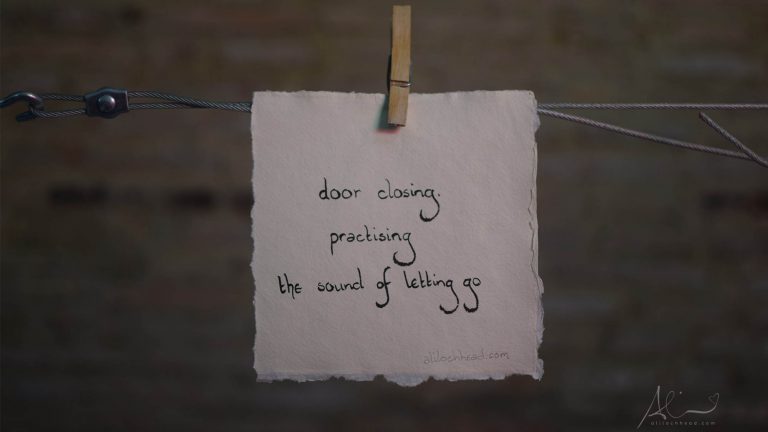 door closing.
practising
the sound of letting go
alilochhead.com
Ali
alilochhead.com